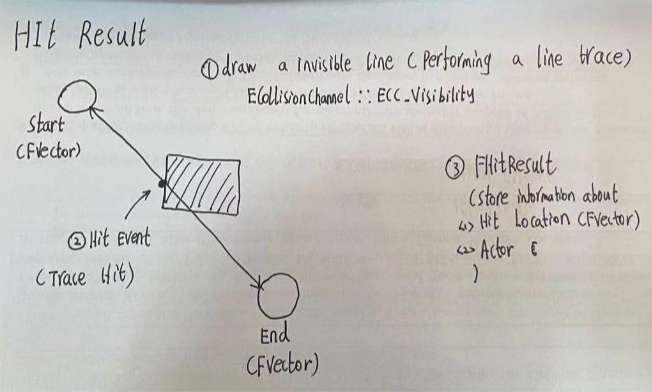 HIt Result
① draw a invisible line ( Performing a line trace)
ECollisionChannel :: ECC_Visibility
Start
(FVector)
② Hit Event
(Trace Hit)
End
(FVector)
③ FHitResult
(store information about
<1> Hit Location (FVector)
<2> Actor
)